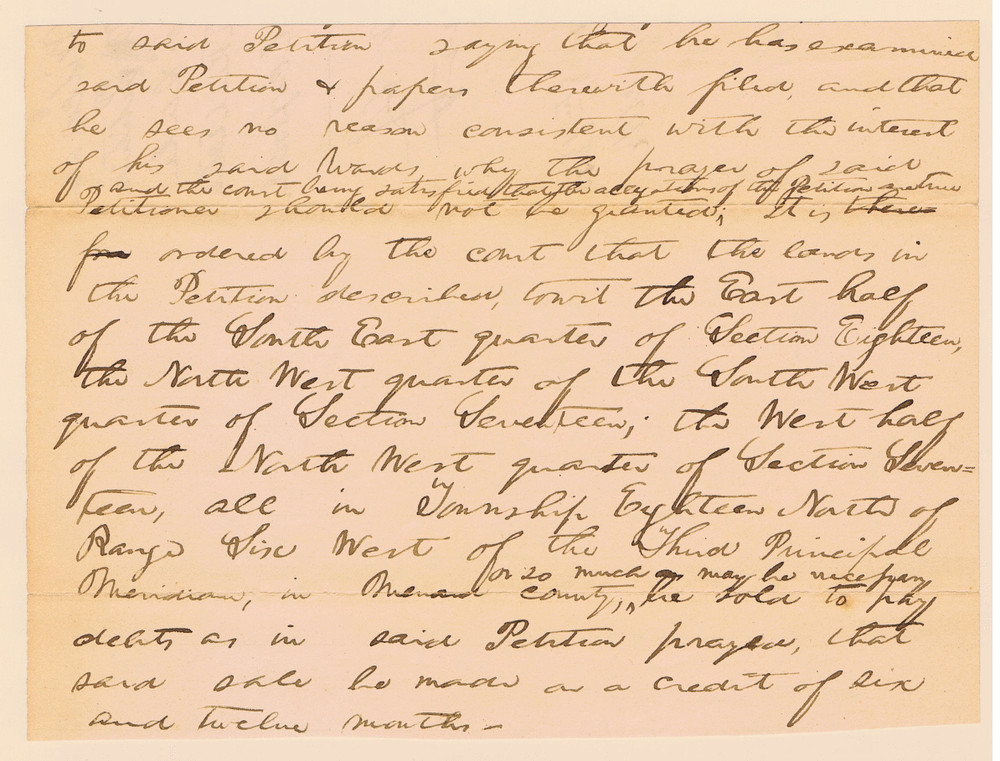 to said Petition saying that he has examined
said Petition & papers therewith filed, and that
he sees no reason consistent with the interest
of his said Wards why the prayer of said
and the court being satisfied that the allegations of the petition are true
Petitioner should not be granted; It is there-
for ordered by the court that the lands in
the Petition described, towit the East half
of the South East quarter of Section Eighteen,
the North West quarter of the South West
quarter of Section Seventeen; the West half
of the North West quarter of Section Seven=
teen, all in Township Eighteen North of
Range Six West of the Third Principal
or so much as may be necessary
Meridian, in Menard county, be sold to pay
debts as in said Petition prayed, that
said sale be made on a credit of six
and twelve months-